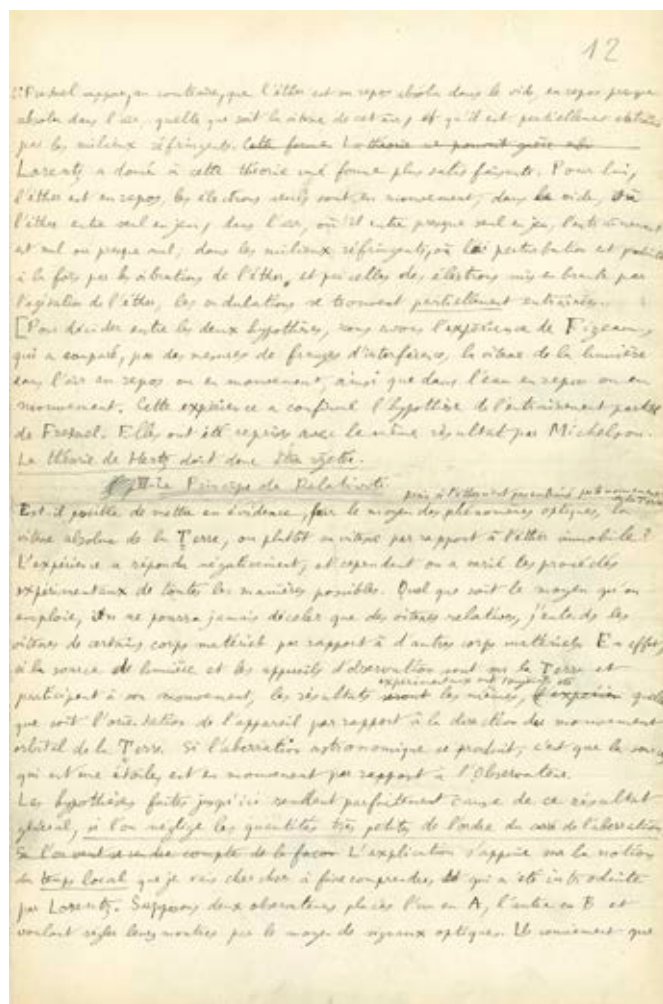 12
Fresnel suppose, au contraire, que l'éther est en repos absolu dans le vide, en repos presque
absolu dans l'air, quelle que soit la vitesse de cet air, et qu'il est partiellement entraîné
par les milieux réfringents. Cette forme La théorie ne pouvait guère
Lorentz a donné à cette théorie une forme plus satisfaisante. Pour lui,
l'éther est en repos, les électrons seuls sont en mouvement; dans le vide, où
l'éther entre seul en jeu, dans l'air, où il entre presque seul en jeu, l'entraînement
est nul ou presque nul; dans les milieux réfringents, où la perturbation est produite
à la fois par les vibrations de l'éther, et par celles des électrons mis en branle par
l'agitation de l'éther, les ondulations se trouvent partiellement entraînées.
[Pour décider entre les deux hypothèses, nous avons l'expérience de Fizeau,
qui a comparé, par des mesures de franges d'interférence, la vitesse de la lumière
dans l'air en repos ou en mouvement, ainsi que dans l'eau en repos ou en
mouvement. Cette expérience a confirmé l'hypothèse de l'entraînement partiel
de Fresnel. Elles ont été reprises avec le même résultat par Michelson.
La théorie de Hertz doit donc être rejetée.
II Le Principe de Relativité
Est il possible de mettre en évidence, par le moyen des phénomènes optiques, la
vitesse absolue de la Terre, ou plutôt sa vitesse par rapport à l'éther immobile?
L'expérience a répondu négativement, et cependant on a varié les procédés
expérimentaux de toutes les manières possibles. Quel que soit le moyen qu'on
emploie, on ne pourra jamais déceler que des vitesses relatives, j'entends les
vitesses de certains corps matériels par rapport à d'autres corps matériels. En effet,
si la source de lumière et les appareils d'observation sont sur la Terre et
participent à son mouvement, les résultats expérimentaux ont toujours été les mêmes, quelle
que soit l'orientation de l'appareil par rapport à la direction du mouvement
orbital de la Terre. Si l'aberration astronomique se produit, c'est que la source
qui est une étoiles est en mouvement par rapport à l'Observateur.
Les hypothèses faites jusqu'ici rendent parfaitement compte de ce résultat
général, si l'on néglige les quantités très petites de l'ordre du carré de l'aberration
Si l'on veut se rendre compte de la façon L'explication s'appuie sur la notion
du temps local que je vais chercher à faire comprendre, et qui a été introduite
par Lorentz. Supposons deux observateurs placés l'un en A, l'autre en B et
voulant régler leurs montres par le moyen de signaux optiques. Ils conviennent que